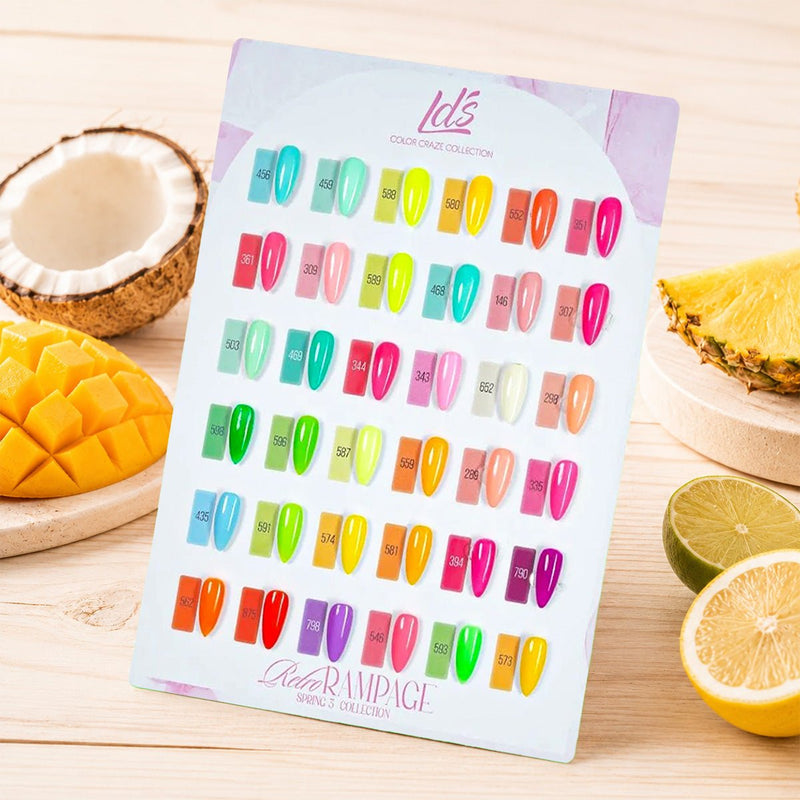 ld's
COLOR CRAZE COLLECTION
456 459 588 580 552 351
361 309 589 468 146 307
503 469 344 343 652 298
598 596 587 559 289 335
435 591 574 581 394 790
562 875 798 546 593 573
Retro RAMPAGE
SPRING 3 COLLECTION